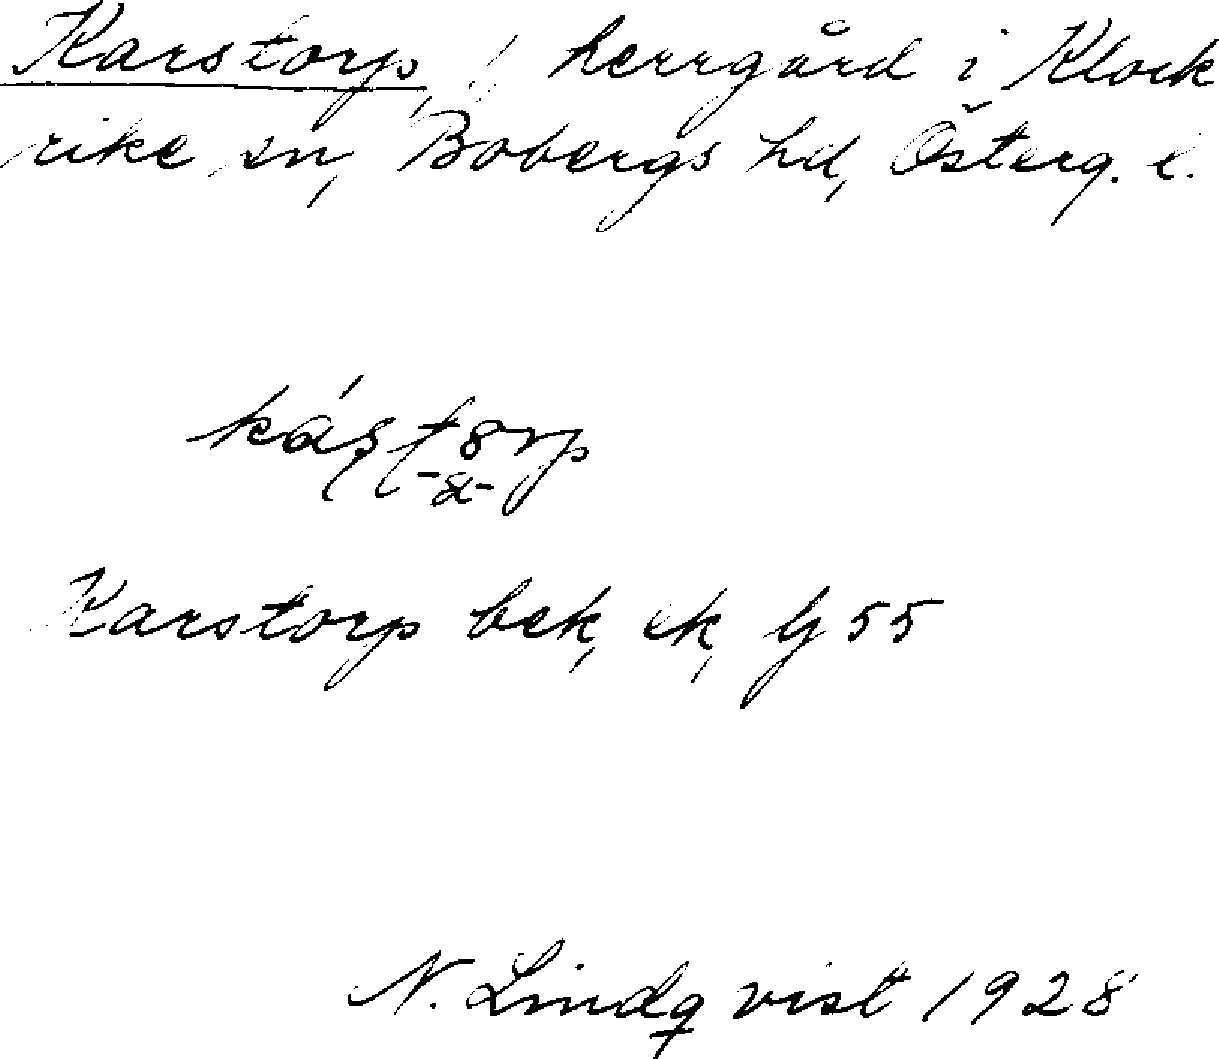 Karstorp, herrgård i Klock
rike sn, Bobergs hd, Österg. l.
Karstorp bek, ek, G 55
N. Lindqvist 1928